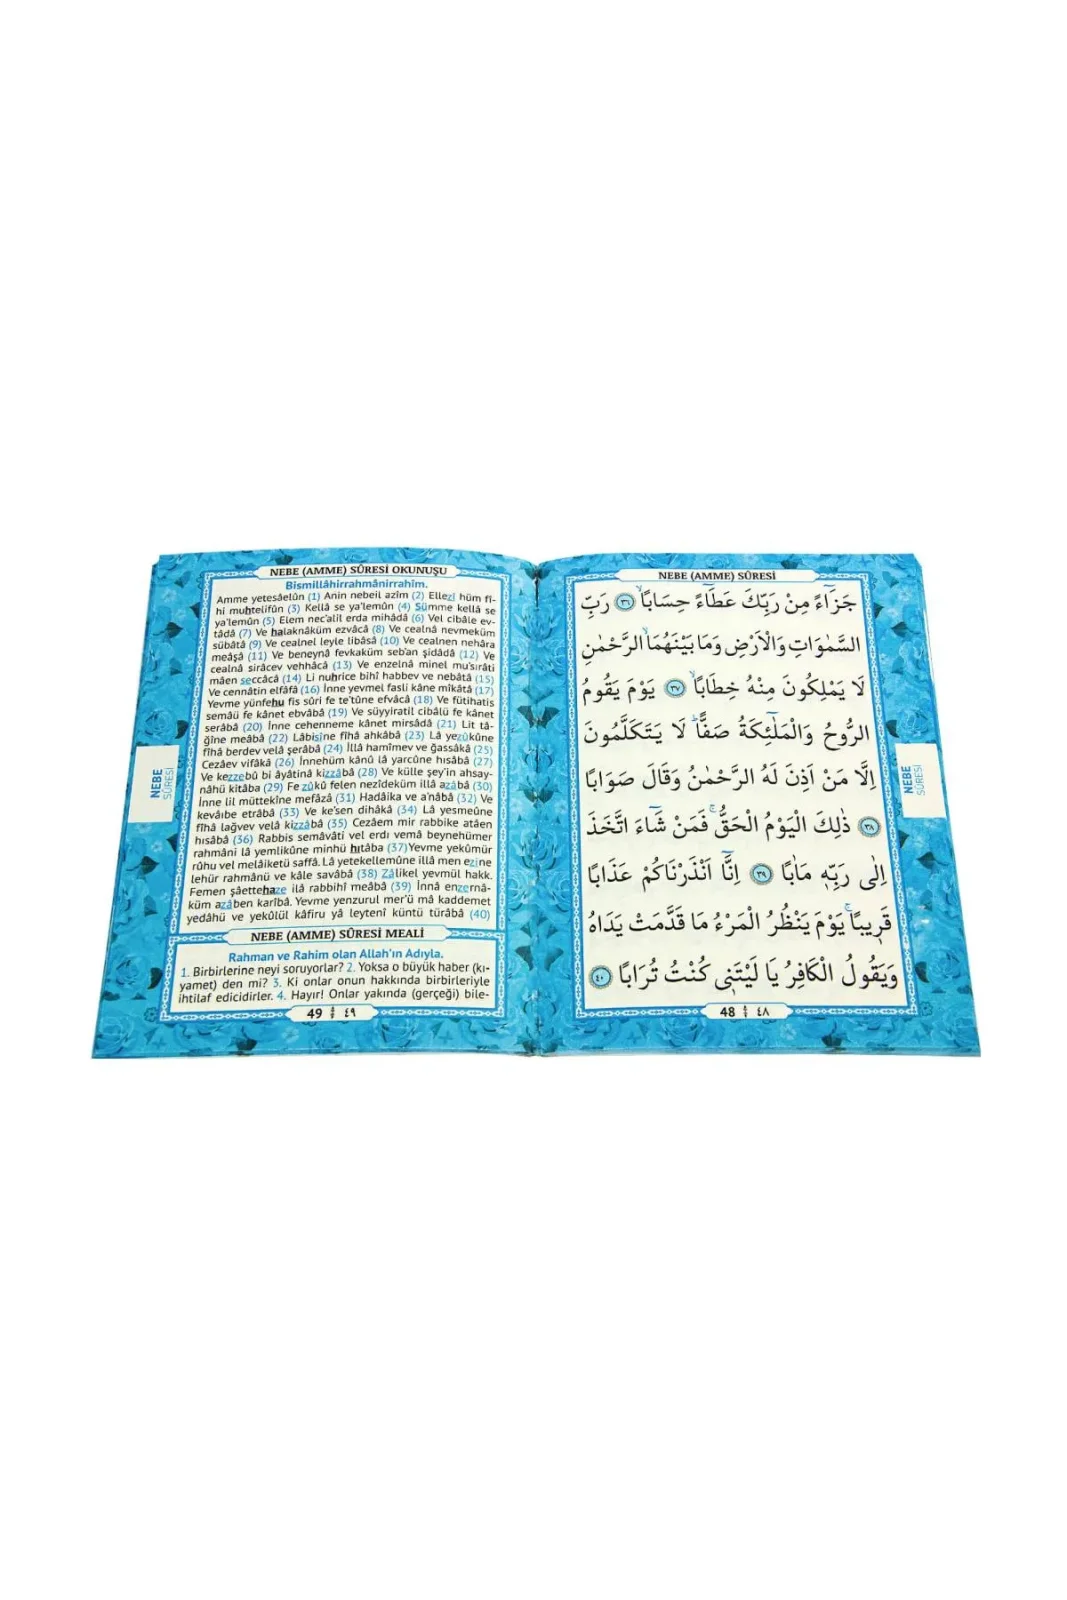 NEBE (AMME) SÛRESİ OKUNUŞU
Bismillâhirrahmânirrahîm.
Amme yetesâelûn (1) Anin nebeil azîm (2) Ellezî hüm fî-
hi muhtelifûn (3) Kellâ se ya'lemûn (4) Sümme kellâ se
ya'lemûn (5) Elem nec'alil erda mihâdâ (6) Vel cibâle ev-
tâdâ (7) Ve halaknâküm ezvâcâ (8) Ve cealnâ nevmeküm
sübâtâ (9) Ve cealnel leyle libâsâ (10) Ve cealnen nehâra
meâşâ (11) Ve beneynâ fevkaküm seb'an şidâdâ (12) Ve
cealnâ sirâcev vehhâcâ (13) Ve enzelnâ minel mu'sırâti
mâen seccâcâ (14) Li nuhrice bihî habbev ve nebâtâ (15)
Ve cennâtin elfâfâ (16) İnne yevmel fasli kâne mîkâtâ (17)
Yevme yünfehu fis sûri fe te'tûne efvâcâ (18) Ve fütihatis
semâü fe kânet ebvâbâ (19) Ve süyyiratil cibâlü fe kânet
serâbâ (20) İnne cehenneme kânet mirsâdâ (21) Lit tâ-
ğîne meâbâ (22) Lâbisîne fîhâ ahkâbâ (23) Lâ yezûkûne
fîhâ berdev velâ şerâbâ (24) İllâ hamîmev ve ğassâkâ (25)
Cezâev vifâkâ (26) İnnehüm kânû lâ yarcûne hısâbâ (27)
Ve kezzebû bi âyâtinâ kizzâbâ (28) Ve külle şey'in ahsay-
nâhü kitâba (29) Fe zûkû felen nezîdeküm illâ azâbâ (30)
İnne lil müttekîne mefâzâ (31) Hadâika ve a'nâbâ (32) Ve
kevâıbe etrâbâ (33) Ve ke'sen dihâkâ (34) Lâ yesmeûne
fîhâ lağvev velâ kizzâbâ (35) Cezâem mir rabbike atâen
hısâbâ (36) Rabbis semâvâti vel erdı vemâ beynehümer
rahmâni lâ yemlikûne minhü hıtâba (37)Yevme yekûmür
rûhu vel melâiketü saffâ. Lâ yetekellemûne illâ men ezine
lehür rahmânü ve kâle savâbâ (38) Zâlikel yevmül hakk.
Femen şâettehaze ilâ rabbihî meâbâ (39) İnnâ enzernâ-
küm azâben karîbâ. Yevme yenzurul mer'ü mâ kaddemet
yedâhü ve yekûlül kâfiru yâ leytenî küntü türâbâ (40)
NEBE (AMME) SÛRESİ MEALİ
Rahman ve Rahim olan Allah'ın Adıyla.
1. Birbirlerine neyi soruyorlar? 2. Yoksa o büyük haber (kı-
yamet) den mi? 3. Ki onlar onun hakkında birbirleriyle
ihtilaf edicidirler. 4. Hayır! Onlar yakında (gerçeği) bile-
49 ٤٩
NEBE
SÛRESİ
NEBE (AMME) SÛRESİ
جَزَٓاءً مِنْ رَبِّكَ عَطَٓاءً حِسَابًاۙ ﴿٣٦﴾ رَبِّ
السَّمٰوَاتِ وَالْاَرْضِ وَمَا بَيْنَهُمَا الرَّحْمٰنِ
لَا يَمْلِكُونَ مِنْهُ خِطَابًاۚ ﴿٣٧﴾ يَوْمَ يَقُومُ
الرُّوحُ وَالْمَلٰٓئِكَةُ صَفًّاۜ لَا يَتَكَلَّمُونَ
اِلَّا مَنْ اَذِنَ لَهُ الرَّحْمٰنُ وَقَالَ صَوَابًا
﴿٣٨﴾ ذٰلِكَ الْيَوْمُ الْحَقُّۚ فَمَنْ شَٓاءَ اتَّخَذَ
اِلٰى رَبِّهٖ مَاٰبًا ﴿٣٩﴾ اِنَّٓا اَنْذَرْنَاكُمْ عَذَابًا
قَرٖيبًاۚ يَوْمَ يَنْظُرُ الْمَرْءُ مَا قَدَّمَتْ يَدَاهُ
وَيَقُولُ الْكَافِرُ يَا لَيْتَنٖى كُنْتُ تُرَابًا ﴿٤٠﴾
48 ٤٨
NEBE
SÛRESİ